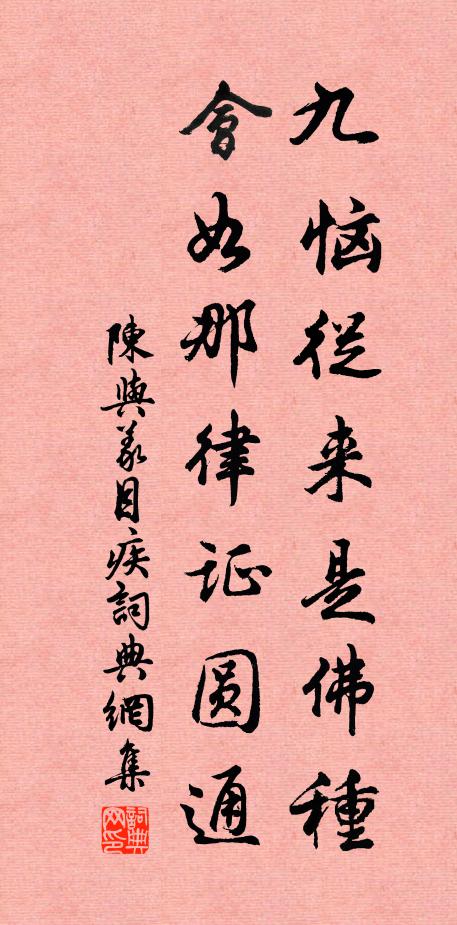 九恼從来是佛種
會如那律证圆通
陳與義目疾詞典網集
詞典网印